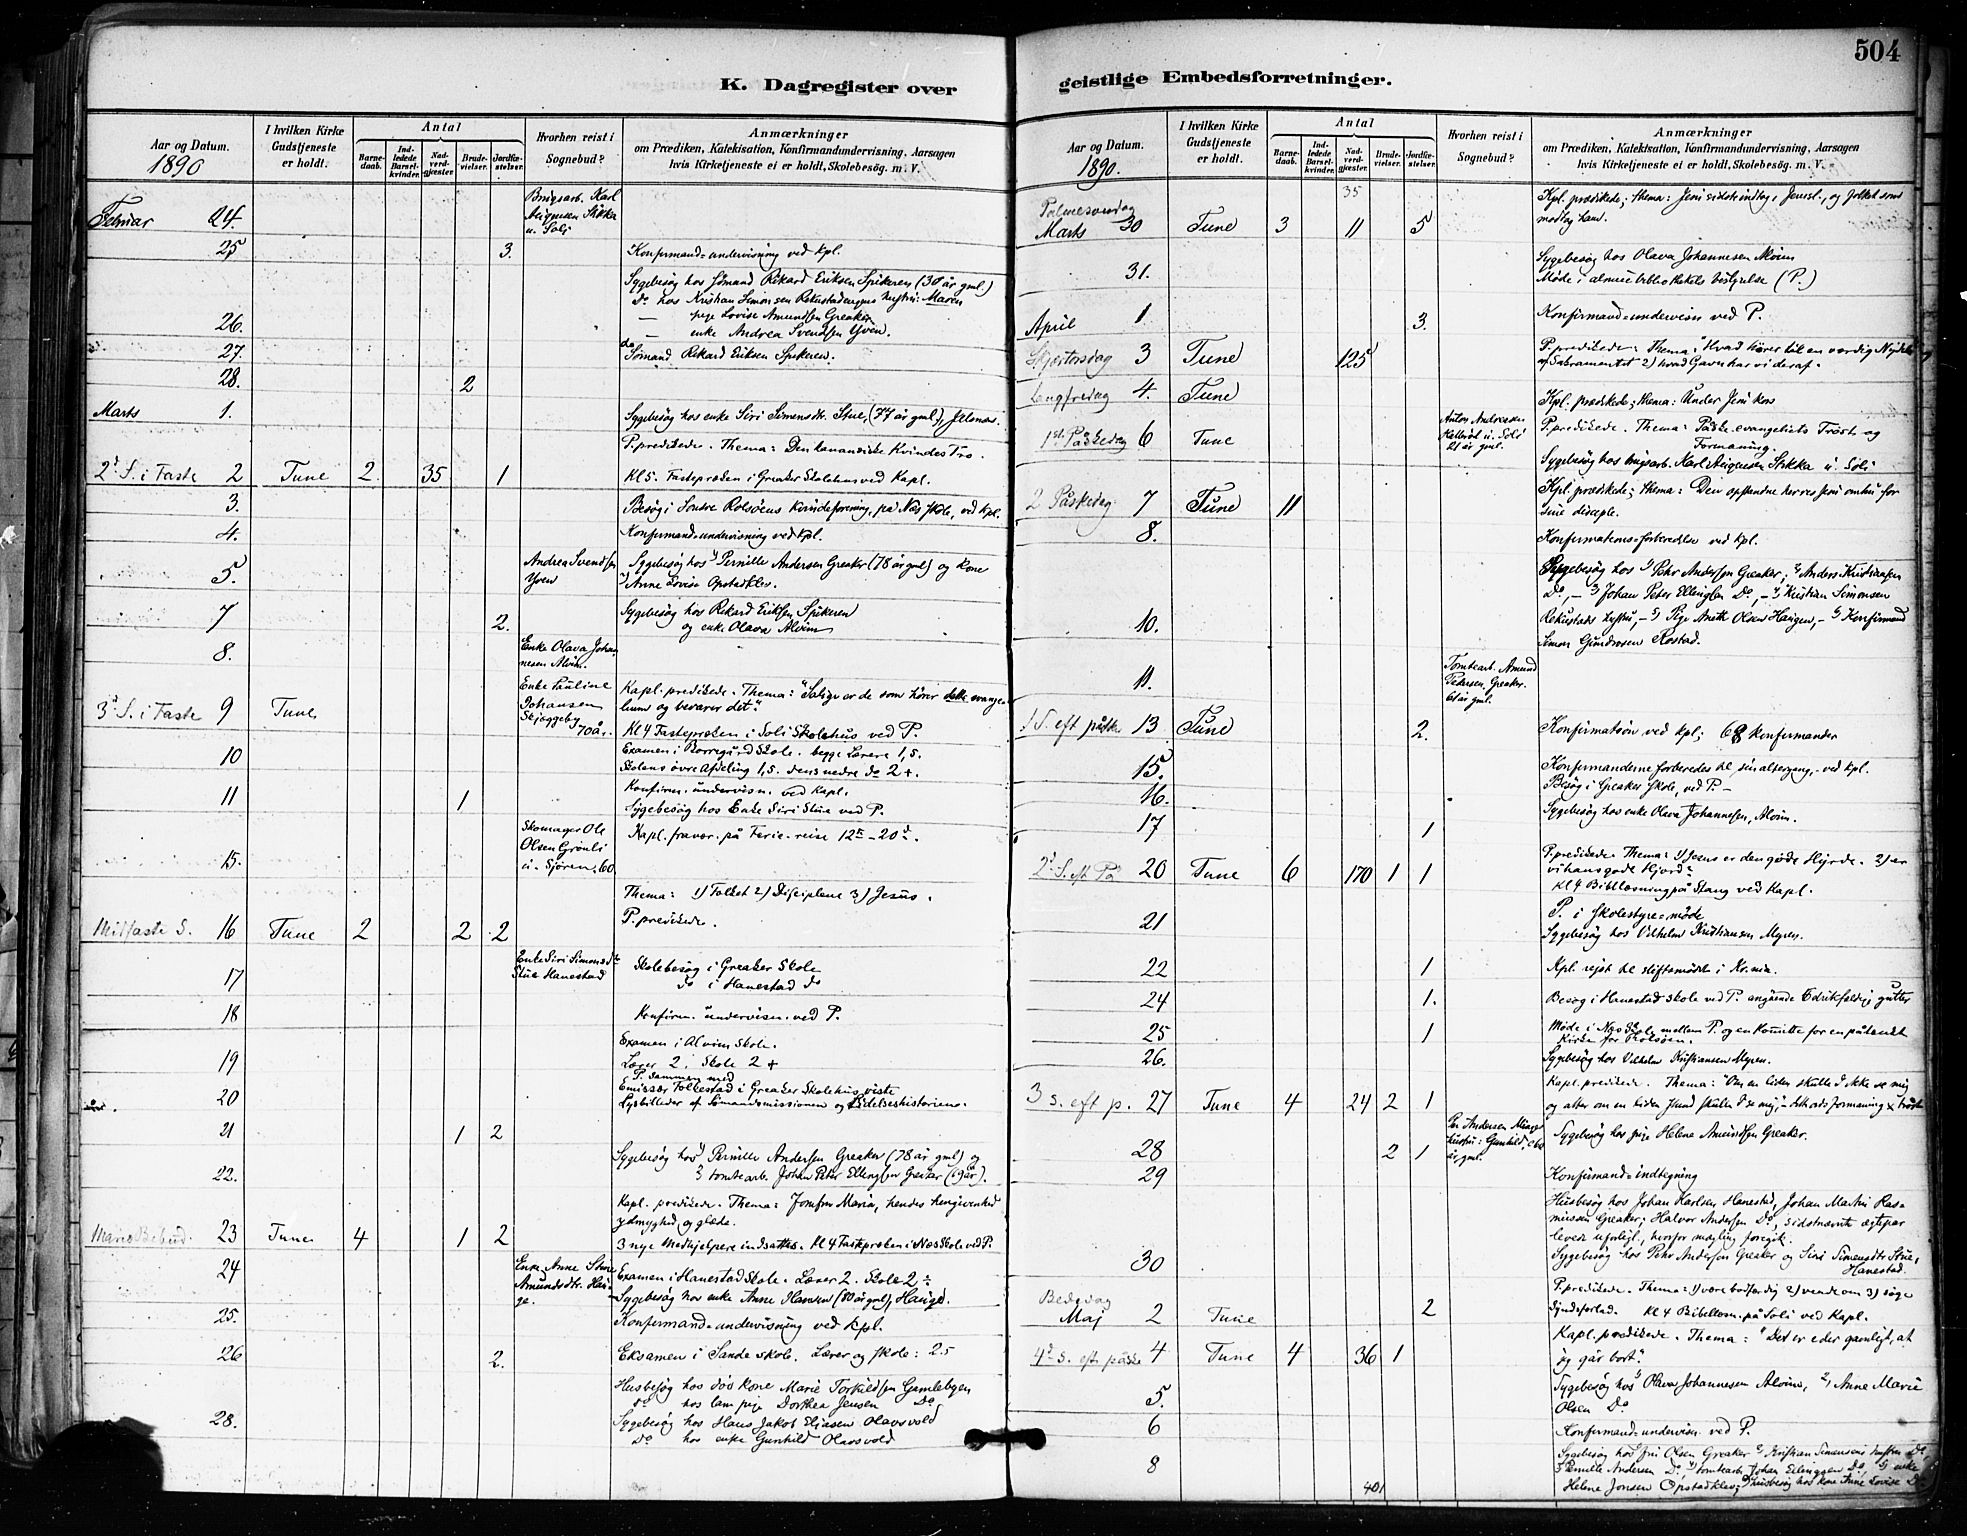 504
K. Dagregister over
Aar og Datum.
1890
I hvilken Kirke
Gudstjeneste
er holdt.
Antal
Barne-
daab.
Ind-
ledede
Barsel-
kvinder.
Nad-
verd-
gjæster.
Brude-
vielser.
Jordfæ-
stelser.
Hvorhen reist i
Sognebud?
Anmærkninger
om Prædiken, Katekisation, Konfirmandundervisning, Aarsagen
hvis Kirketjeneste ei er holdt, Skolebesøg. m. V.
Februar 24. Brugsarb. Karl
Stikka
u. Soli
25 3. Konfirmand=undervisning ved kpl.
Sygebesøg hos Sømand Rikard Eriksen Spikeren (30 år gml.)
do hos Kristian Simonsen hustru: Maren
26. — pige Lovise Amundsen Greaker
— enke Andrea Svendsen Yven.
27. do Sømand Rikard Eriksen Spikeren.
28. 2
Marts 1. Sygebesøg hos enke Siri Simensdt. Stue, (77 år gml),
P. predikede. Thema: Den kananæiske Kvindes Tro.
2d S. i Faste 2 Tune 2 35 1 Kl 5. Fastepræken i Greaker Skolehus ved Kapl.
3. Besøg i Søndre Rolsøens kvindeforening, på Næs skole, ved kpl.
4. Konfirmand=undervisning ved kpl.
5. Andrea Svendsen
Yven
Sygebesøg hos 1) Pernille Andersen Greaker (78 år gml) og kone
2) Anne Lovise Opstadklev.
7 2. Sygebesøg hos Rikard Eriksen Spikeren
og enke Olava Alvim
8. Enke Olava Johan
nesen Alvim.
3d S. i Faste 9 Tune Enke Pauline
Johansen
Skjøggeby 70 år.
Kapl. predikede. Thema: "Salige er de som hører dette evange-
lium og bevarer det".
Kl 4 Fastepræken i Soli Skolehus ved P.
10 Examen i Borregård Skole. begge Lærere 1,5.
Skolens øvre Afdeling 1,5. dens nedre do 2+.
11 1 Konfirm. undervisn. ved Kapl.
Sygebesøg hos Enke Siri Stue ved P.
15. Skomager Ole
Olsen Grønli
u. Sjøren. 60
Kapl. fravær. på Ferie-reise 12te–20d.
Thema: 1) Folket 2) Disciplene 3) Jesus.
Midfaste S. 16 Tune 2 2 2 P. predikede.
17 Enke Siri Simonsdt
Stue Hanestad
Skolebesøg i Greaker Skole
do i Hanestad do
18 Konfirm. undervisn. ved P.
19 Examen i Alvim Skole.
Lærer 2. Skole 2+
20 P. sammen med
Emissær Folkestad i Greaker Skolehus viste
Lysbilleder af Sømandsmissionen og Lidelseshistorien.
21 1 2
22. Sygebesøg hos 1) Pernille Andersen Greaker (78 år gml) og
2 tomtearb. Johan Peter Ellingsen Greaker (19 år).
Kapl. predikede. Thema: Jomfru Maria, hendes hengivenhed
ydmyghed og glæde.
Mariæ Bebud. 23 Tune 4 1 2 3 nye Medhjelpere indsattes. Kl 4 Fastepreken i Næs Skole ved P.
24 Enke Anne
Amundsdtr. Hau-
ge.
Examen i Hanestad Skole. Lærer 2. Skole 2÷
Sygebesøg hos enke Anne Hansen (80 år gml), Hauge.
25. Konfirmand=undervisning ved kpl.
26 2. Eksamen i Sande skole. Lærer og skole: 2.5
Husbesøg hos døv kone Marie Torkildsen Gamlebyen
do hos lam pige Dorthea Jensen Do
28. Sygebesøg hos Hans Jakob Eliasen Olavsvold
Do hos enke Gunhild Olavsvold
geistlige Embedsforretninger.
Aar og Datum.
1890.
I hvilken Kirke
Gudstjeneste
er holdt.
Antal
Barne-
daab.
Ind-
ledede
Barsel-
kvinder.
Nad-
verd-
gjæster.
Brude-
vielser.
Jordfæ-
stelser.
Hvorhen reist i
Sognebud?
Anmærkninger
om Prædiken, Katekisation, Konfirmandundervisning, Aarsagen
hvis Kirketjeneste ei er holdt, Skolebesøg. m. V.
35
Palmesøndag
Marts 30 Tune 3 11 5 Kpl. prædikede; thema: Jesu sidste indtog i Jerusl., og folket som
modtog ham.
31. Sygebesøg hos Olava Johannesen Alvim
Møde i almuebibliothekets bestyrelse (P.)
April 1 3. Konfirmand=undervisn ved P.
Skjærtorsdag 3 Tune 125 P. predikede: Thema: Hvad hører til en værdig Nydelse
af Sakramentet 2) hvad Gavn har vi deraf.
Langfredag 4. Tune Kpl. prædikede; thema: Under Jesu kors
1ste Påskedag 6 Tune Anton Andreasen
u. Soli
år gml.
P. predikede. Thema: Påske-evangeliets Trøst og
Formaning.
Sygebesøg hos brugsarb. Karl Stikka u. Soli
2 Påskedag 7 Tune 11 Kpl. prædikede; thema: Den opstandne herres Jesu omhu for
sine disciple.
8. Konfirmations=forberedelse ved kpl.
10. Sygebesøg hos 1) Pehr Andersen Greaker; 2) Anders Kristiansen
Do, – 3) Johan Peter Ellingsen Do, – 4) Kristian Simonsen
hustru, – 5) Pige Olsen Haugen, – 6) Konfirmand
Simon Gundersen Rostad.
11. Tomtearb. Amund
Pedersen, Greaker.
61 år gml.
1 S. eft påske 13 Tune 2. Konfirmation ved kpl; 68 konfirmander
15. Konfirmanderne forberedes til sin altergang, ved kpl.
16. Besøg i Greaker skole, ved P.
17 1 Sygebesøg hos enke Olava Johannesen, Alvim.
2d S. eft På 20 Tune 6 170 1 1 P. predikede. Thema: 1) Jesus er den gode Hyrde. 2) er
vi hans gode Hjord?
Kl 4 Bibellæsning på Stang ved Kapl.
21 P. i Skolestyre=møde
Sygebesøg hos Vilhelm Kristiansen Myren.
22 1 Kpl. rejst til stiftsmødet i Kr.nia.
24 1. Besøg i Hanestad skole ved P. angående gutter
25 1 Møde i Næs Sk. mellem P. og en komitte for en påtænkt
Kirke for Rolsøen.
26. Sygebesøg hos Vilhelm Kristiansen Myren.
3 s. eft p. 27 Tune 4 24 2 1 Kapl. predikede. Thema: "Om en liden skulle I ikke se mig
og atter om en liden stund skulle I se mig," dette ords formaning & trøst
28 2 1 Per Andersen
hustru: Gunhild,
år gml.
Sygebesøg hos pige Helene Amundsen Greaker.
29 Konfirmand=indtegning
30 Husbesøg hos Johan Karlsen Hanestad, Johan Martin Ras-
mussen Greaker; Halvor Andersen Do, sidstnævnte ægtepar
lever uforligt, hvorfor mægling foregik.
Sygebesøg hos Pehr Andersen Greaker og Siri Simensdtr Stue,
Hanestad.
Bededag
Maj 2 Tune 2 P. predikede. Thema: 1) være bodfærdig 2) vende om 3) søge
Syndsforlad. Kl 4 Bibellæsn. på Soli ved Kapl.
4d s. eft påske 4 Tune 4 36 1 Kapl. prædikede. Thema: "Det er eder gavnligt, at
jeg går bort".
5. Sygebesøg hos 1) Olava Johannesen Alvim, 2) Anne Marie
Olsen Do
6 Konfirmand=undervisn. ved P.
8 Sygebesøg hos fru Olsen Greaker 2) Kristian Simensens hustru Do
3 Pernille Andersen Do, 4) tomtearb. Johan Ellingsen Do, 5) enke
Helene Jensen Opstadklev, husbesøg hos kone Anne Lovise Do
401